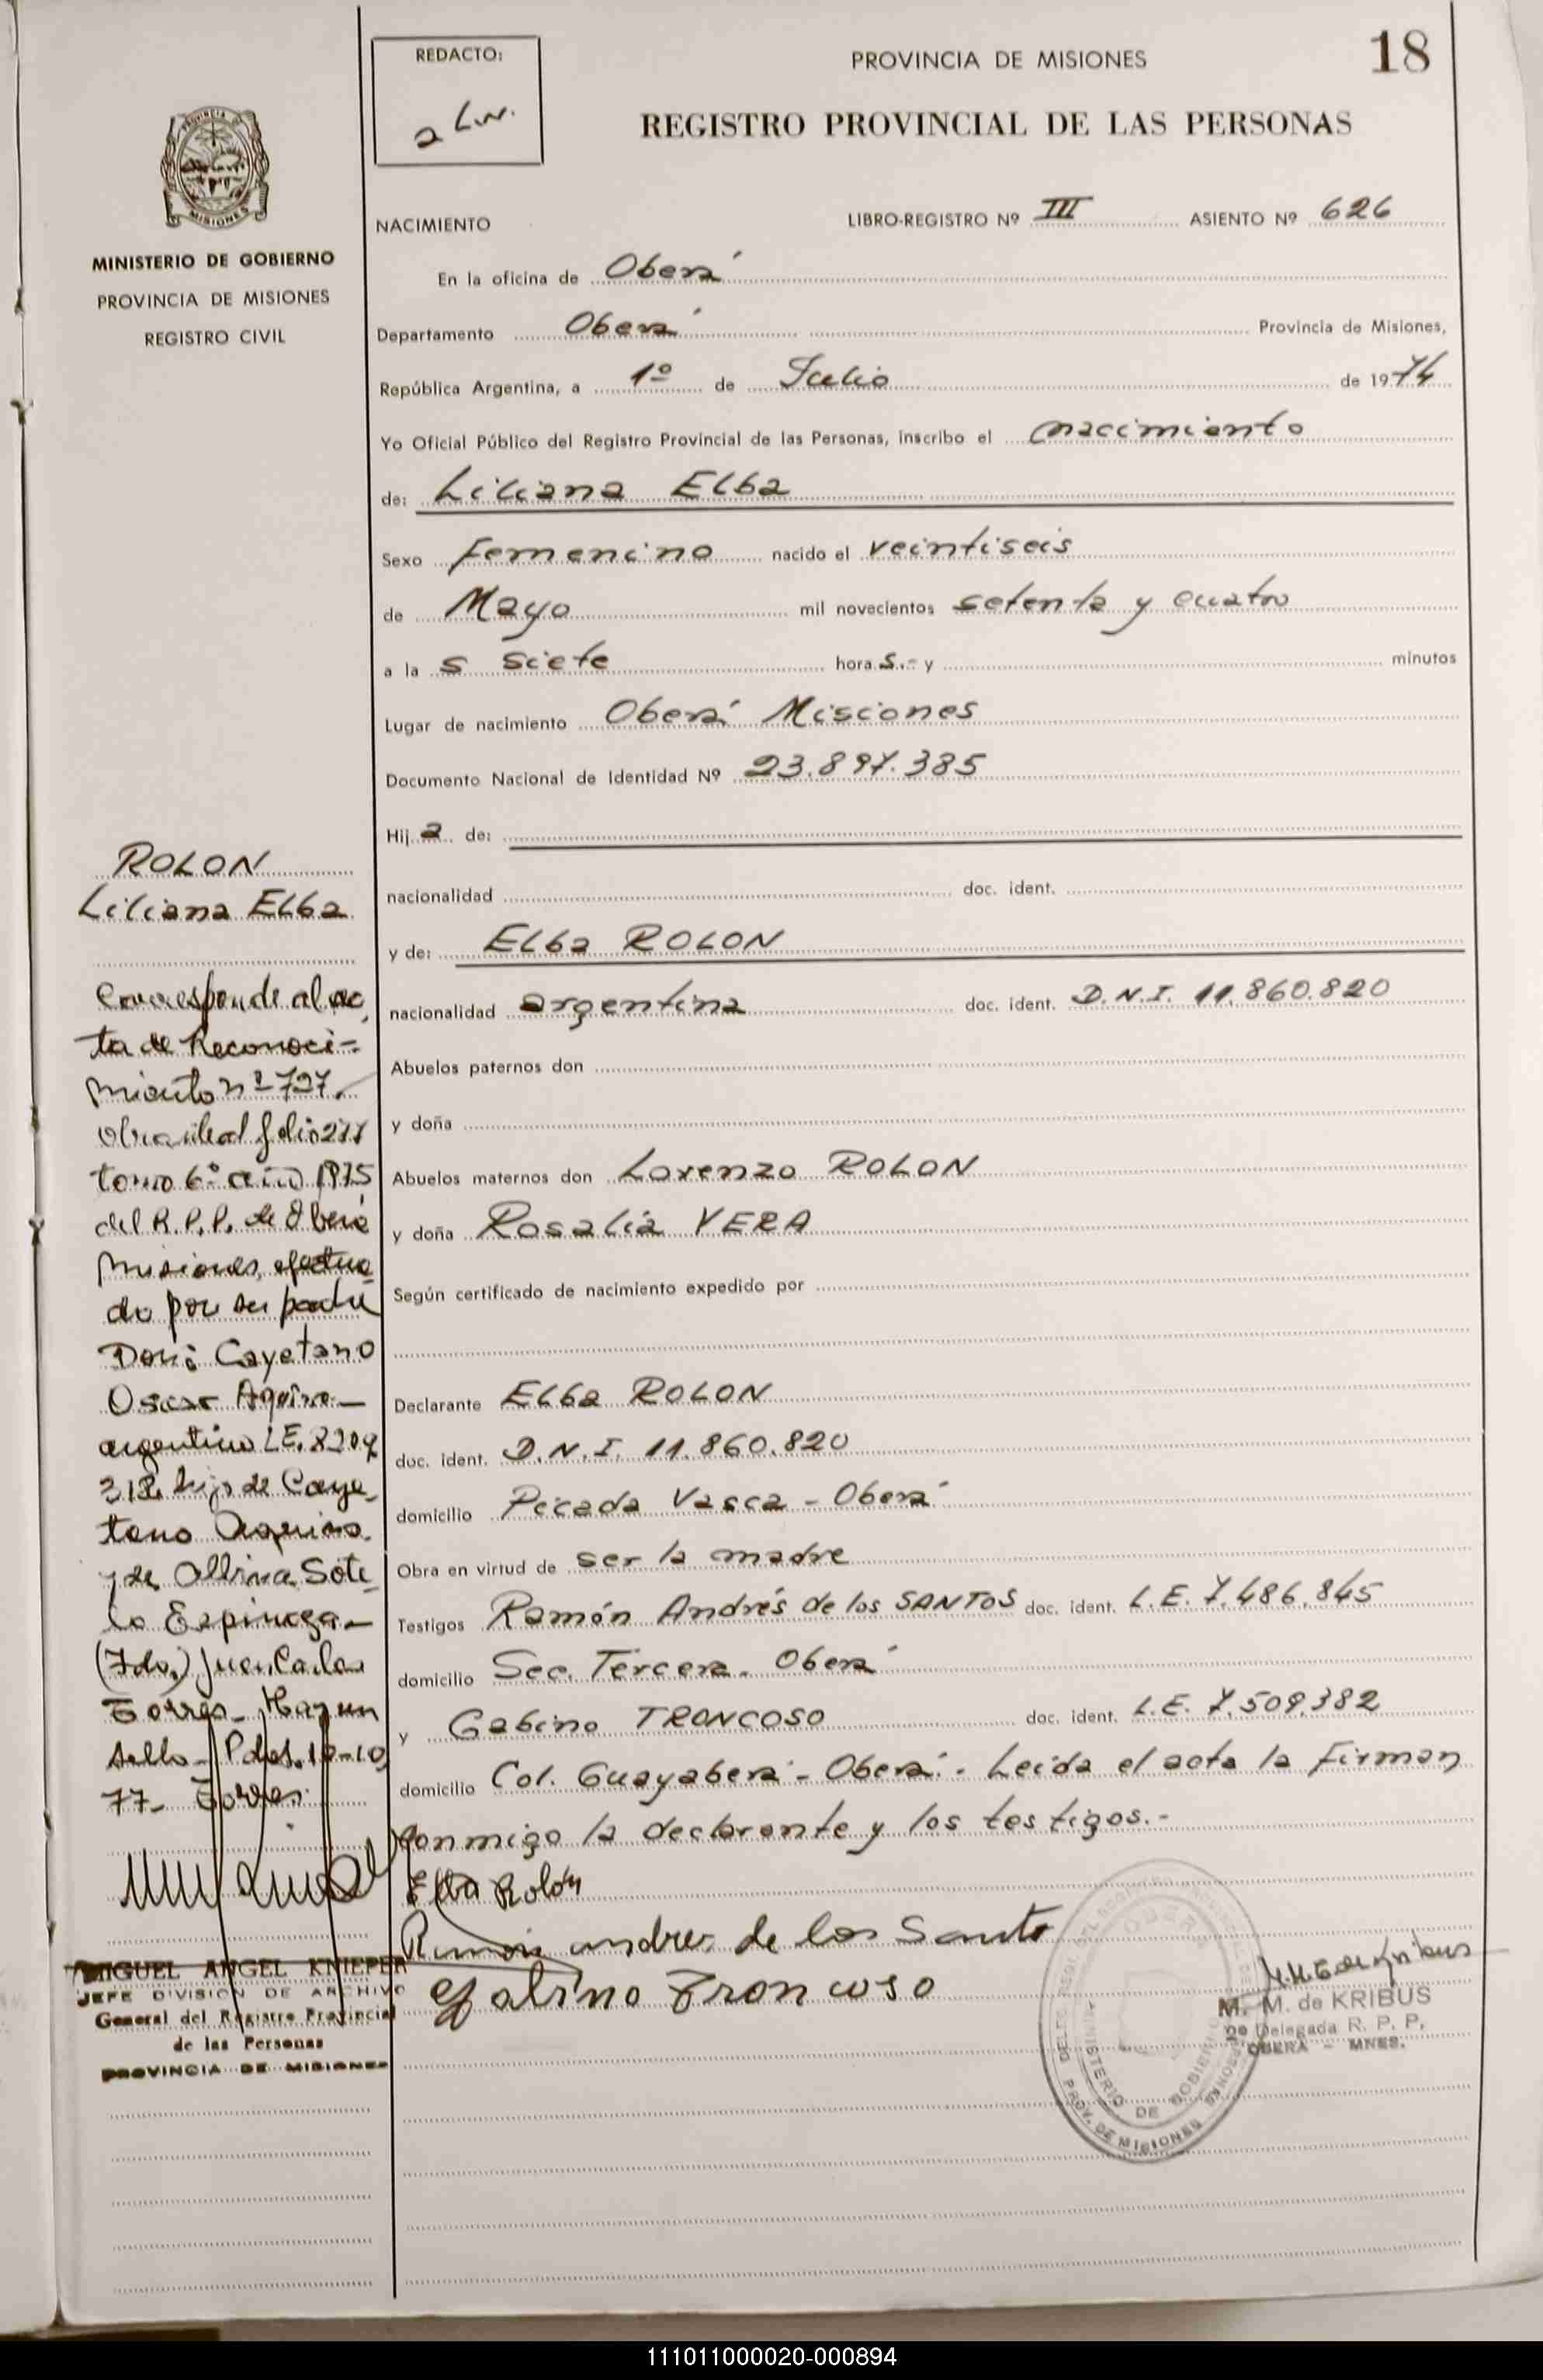 18
REDACTO:
PROVINCIA DE MISIONES
REGISTRO PROVINCIAL DE LAS PERSONAS
MISIONES
MINISTERIO DE GOBIERNO
PROVINCIA DE MISIONES
REGISTRO CIVIL
NACIMIENTO LIBRO-REGISTRO Nº III ASIENTO Nº 626
En la oficina de Oberá
Departamento Oberá Provincia de Misiones,
República Argentina, a 1º de Julio de 1974
Yo Oficial Público del Registro Provincial de las Personas, inscribo el nacimiento
de: Liliana Elba
Sexo Femenino nacido el veintiseis
de Mayo mil novecientos setenta y cuatro
a la s siete hora s.- y minutos
Lugar de nacimiento Oberá Misiones
Documento Nacional de Identidad Nº 23.897.385
Hij a de:
nacionalidad doc. ident.
y de: Elba ROLON
nacionalidad argentina doc. ident. D.N.I. 11.860.820
Abuelos paternos don
y doña
Abuelos maternos don Lorenzo ROLON
y doña Rosalia VERA
Según certificado de nacimiento expedido por
Declarante Elba ROLON
doc. ident. D.N.I. 11.860.820
domicilio Picada Vasca - Oberá
Obra en virtud de ser la madre
Testigos Ramón Andrés de los SANTOS doc. ident. L.E. 7.486.845
domicilio Sec. Tercera - Oberá
y Gabino TRONCOSO doc. ident. L.E. 7.509.382
domicilio Col. Guayaberá - Oberá.- Leída el acta la firman
conmigo la declarante y los testigos.-
Elba Rolón
Ramón andres de los Santo
Gabino Troncoso
M. M. de KRIBUS
Delegada R. P. P.
OBERA - MNES.
MINISTERIO DE GOBIERNO
PROV. DE MISIONES
ROLON
Liliana Elba
Corresponde al ac
ta de Reconoci-
miento nº 727
obrante al folio 277
tomo 6º año 1975
del R.P.P. de Oberá
Misiones, efectua
do por su padre
Don: Cayetano
Oscar Aquino-
argentino L.E. 8209
318 hijo de Caye
tano Aquino
y de Albina Sote
lo Espinoza-
(Fdo.) Juan Carlos
Torres- Hay un
sello- Pdas. 10-10
77- Torres
MIGUEL ANGEL KNIEPER
JEFE DIVISION DE ARCHIVO
General del Registro Provincial
de las Personas
PROVINCIA DE MISIONES
111011000020-000894